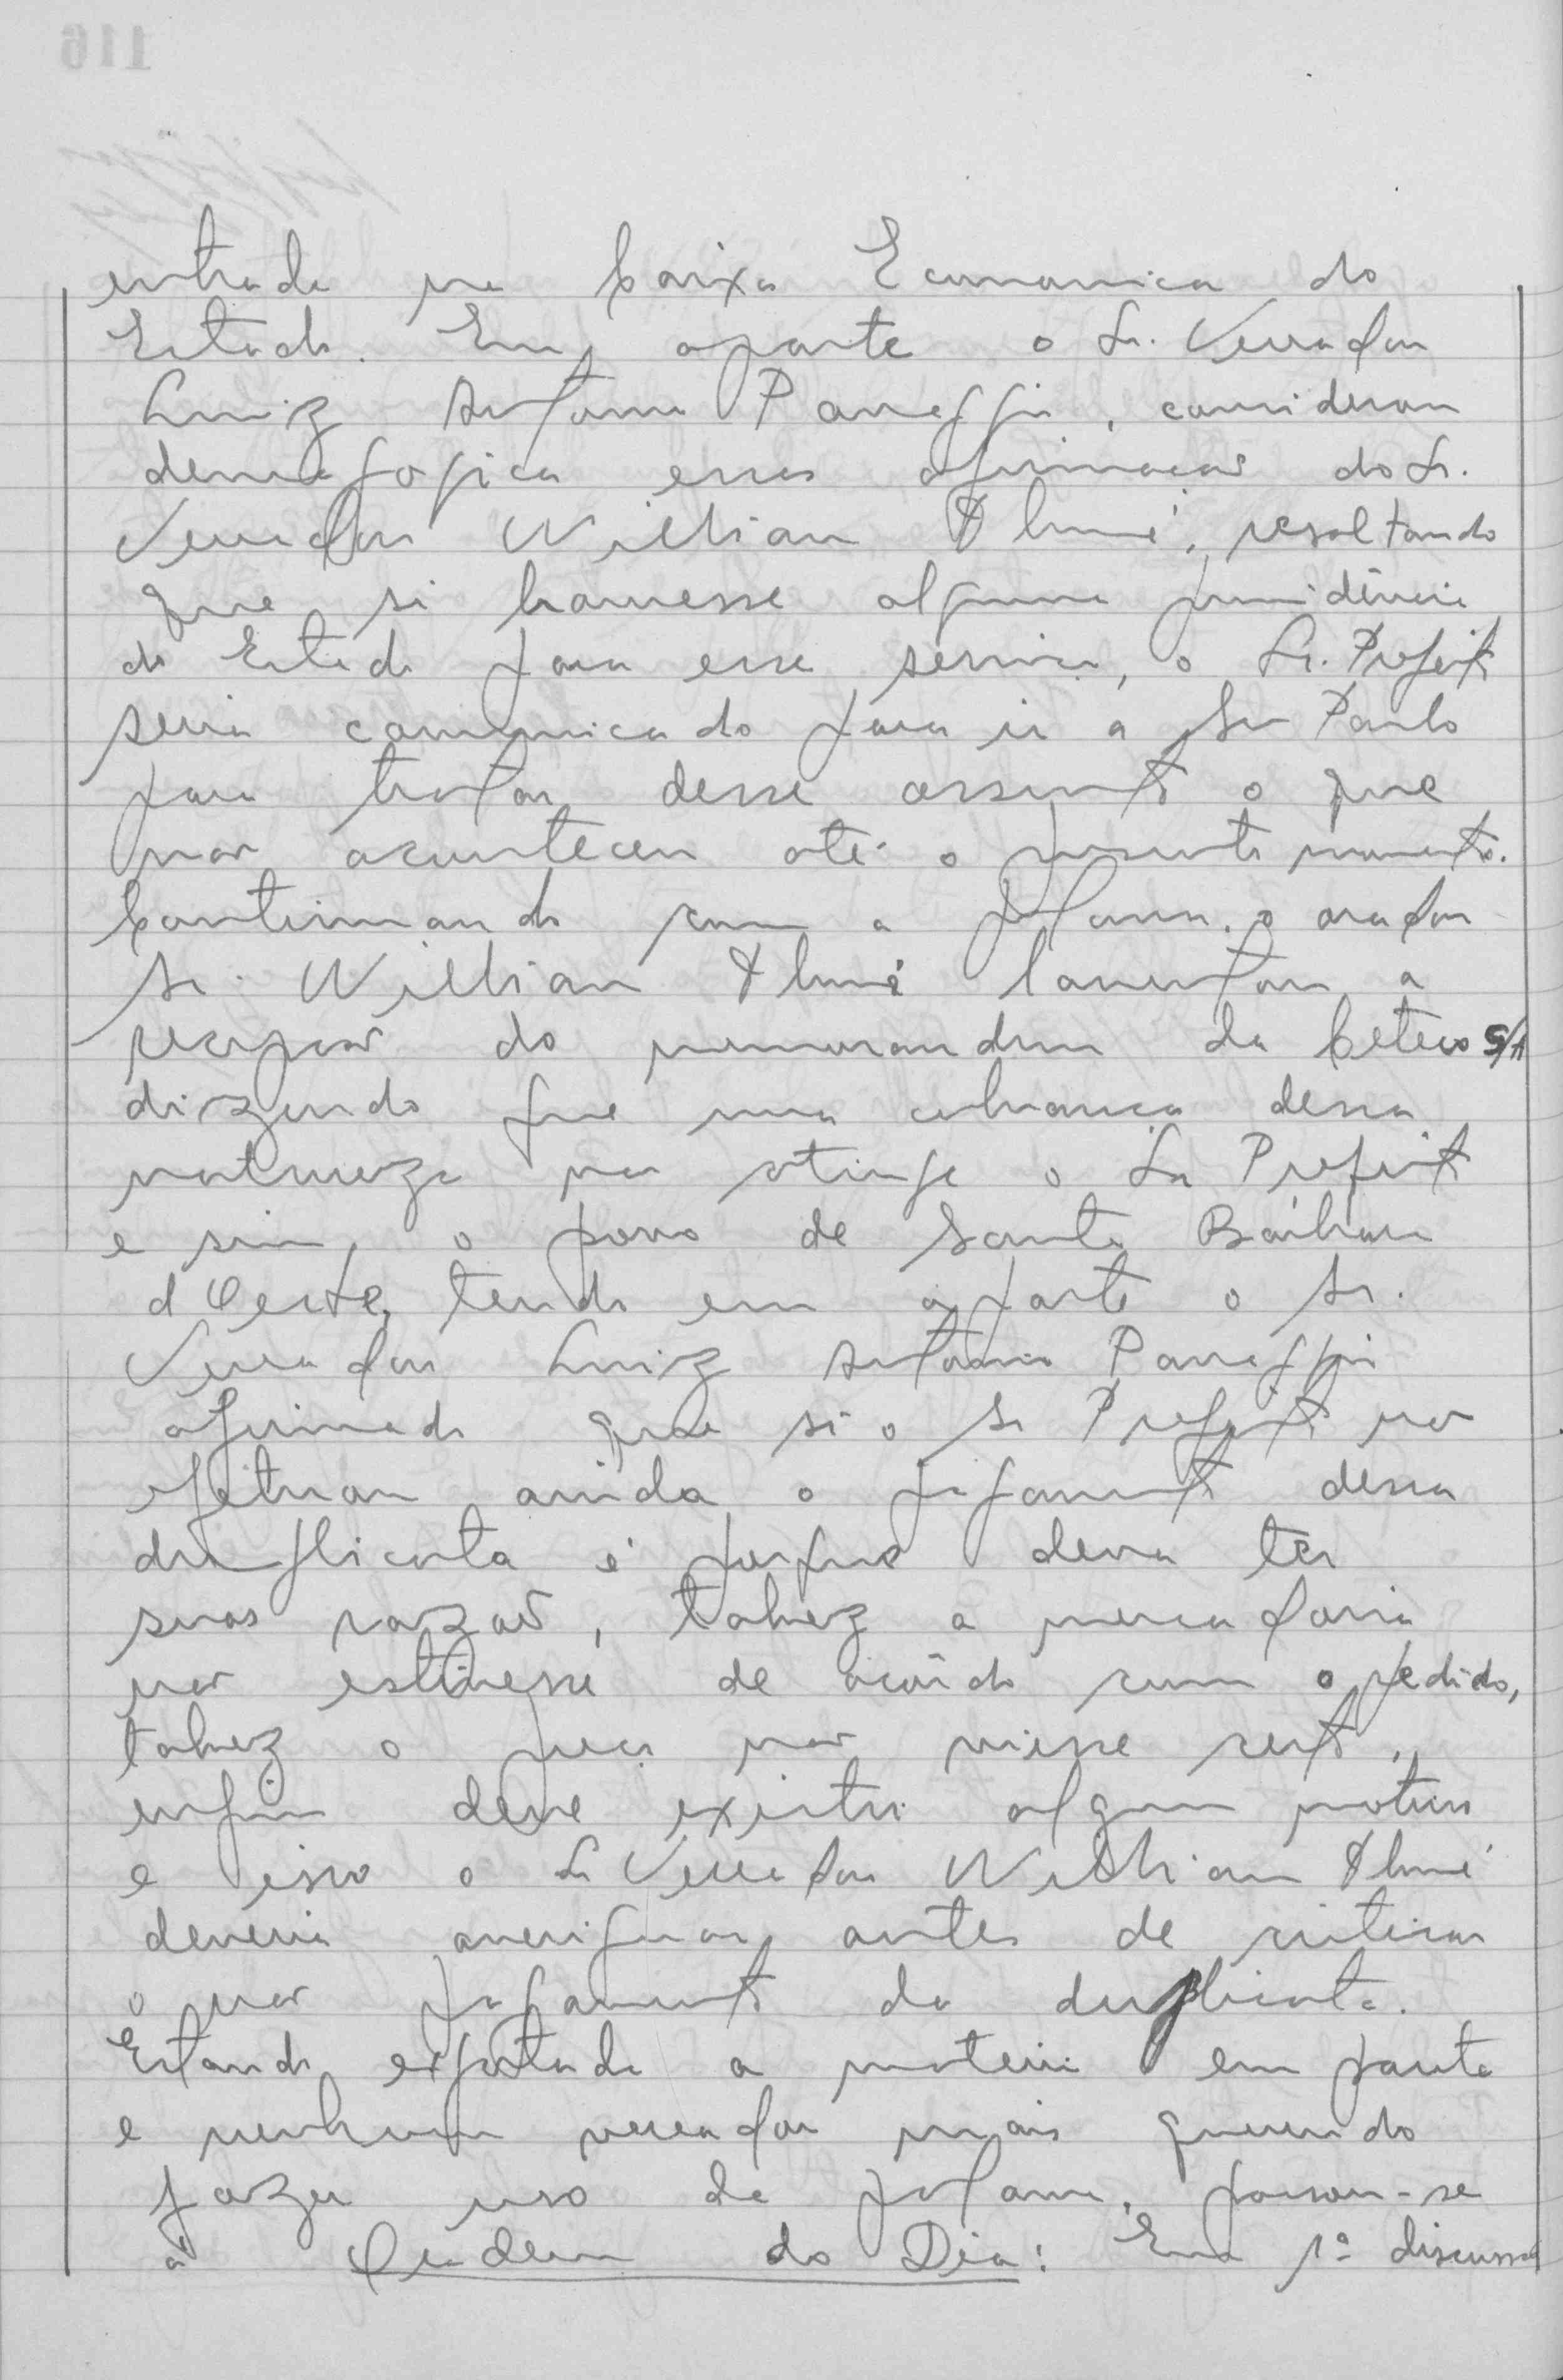 entrada na Caixa Economica do
Estado. Em aparte o Sr. Vereador
Luiz Antonio Panaggio, considerou
demagogica essas afirmacões do Sr.
Vereador Willian Thumé, resaltando
que si houvesse alguma providência
do Estado para esse servico, o Sr. Prefeito
seria comunicado para ir a São Paulo
para tratar desse assunto o que
não aconteceu até o presente momento.
Continuando com a palavra, o orador
Sr. Willian Thumé lamentou a
recepção do memorandum da Ceteco S/A
dizendo que uma cobranca dessa
natureza não atinge o Sr Prefeito
e sim, o povo de Santa Bárbara
d'Oeste, tendo em aparte o Sr.
Vereador Luiz Antonio Panaggio
afirmado que si o Sr Prefeito não
efetuou ainda o pagamento dessa
duplicata é porque deva ter
suas razões, talvez a mercadoria
não estivesse de acôrdo com o pedido,
talvez o preço não viesse certo,
enfim deve existir algum motivo
e isso o Sr Vereador Willian Thumé
deveria averiguar antes de criticar
o não pagamento da duplicata.
Estando esgotada a materia em pauta
e nenhum vereador mais querendo
fazer uso da palavra, passou-se
à Ordem do Dia: Em 1ª discussão